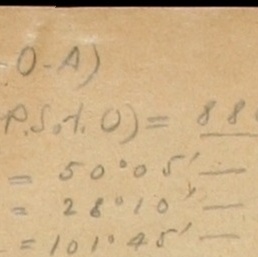 O-A)
P.S.t. O) = 88
= 50°05' —
= 28°10' —
= 101°45' —